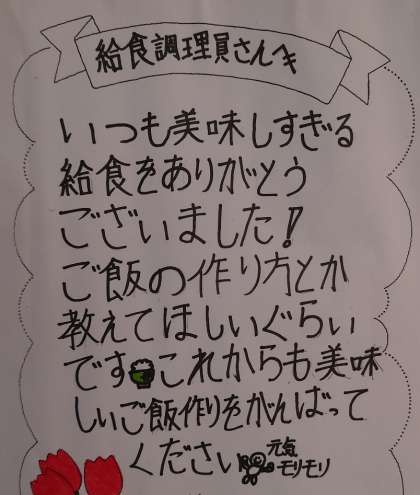 給食調理員さんへ
いつも美味しすぎる
給食をありがとう
ございました!
ご飯の作り方とか
教えてほしいぐらい
ですこれからも美味
しいご飯作りをがんばって
ください
元気
モリモリ